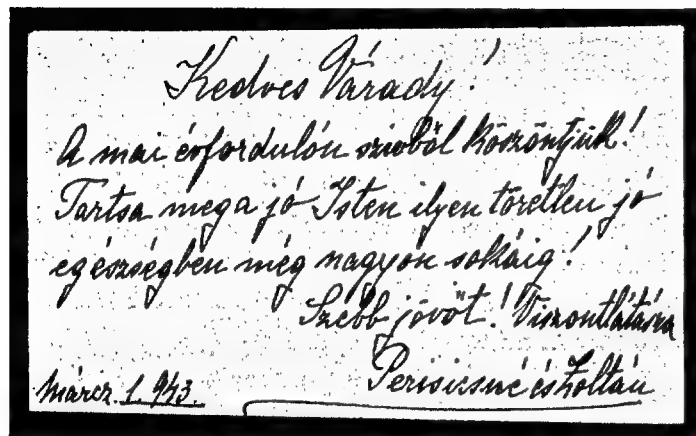 Kedves Várady!
A mai évfordulón szivből köszöntjük!
Tartsa meg a jó Isten ilyen töretlen jó
egészségben még nagyon sokáig!
Szebb jövőt! Viszontlátásra
Perisicsné és Zoltán
márcz. 1. 943.